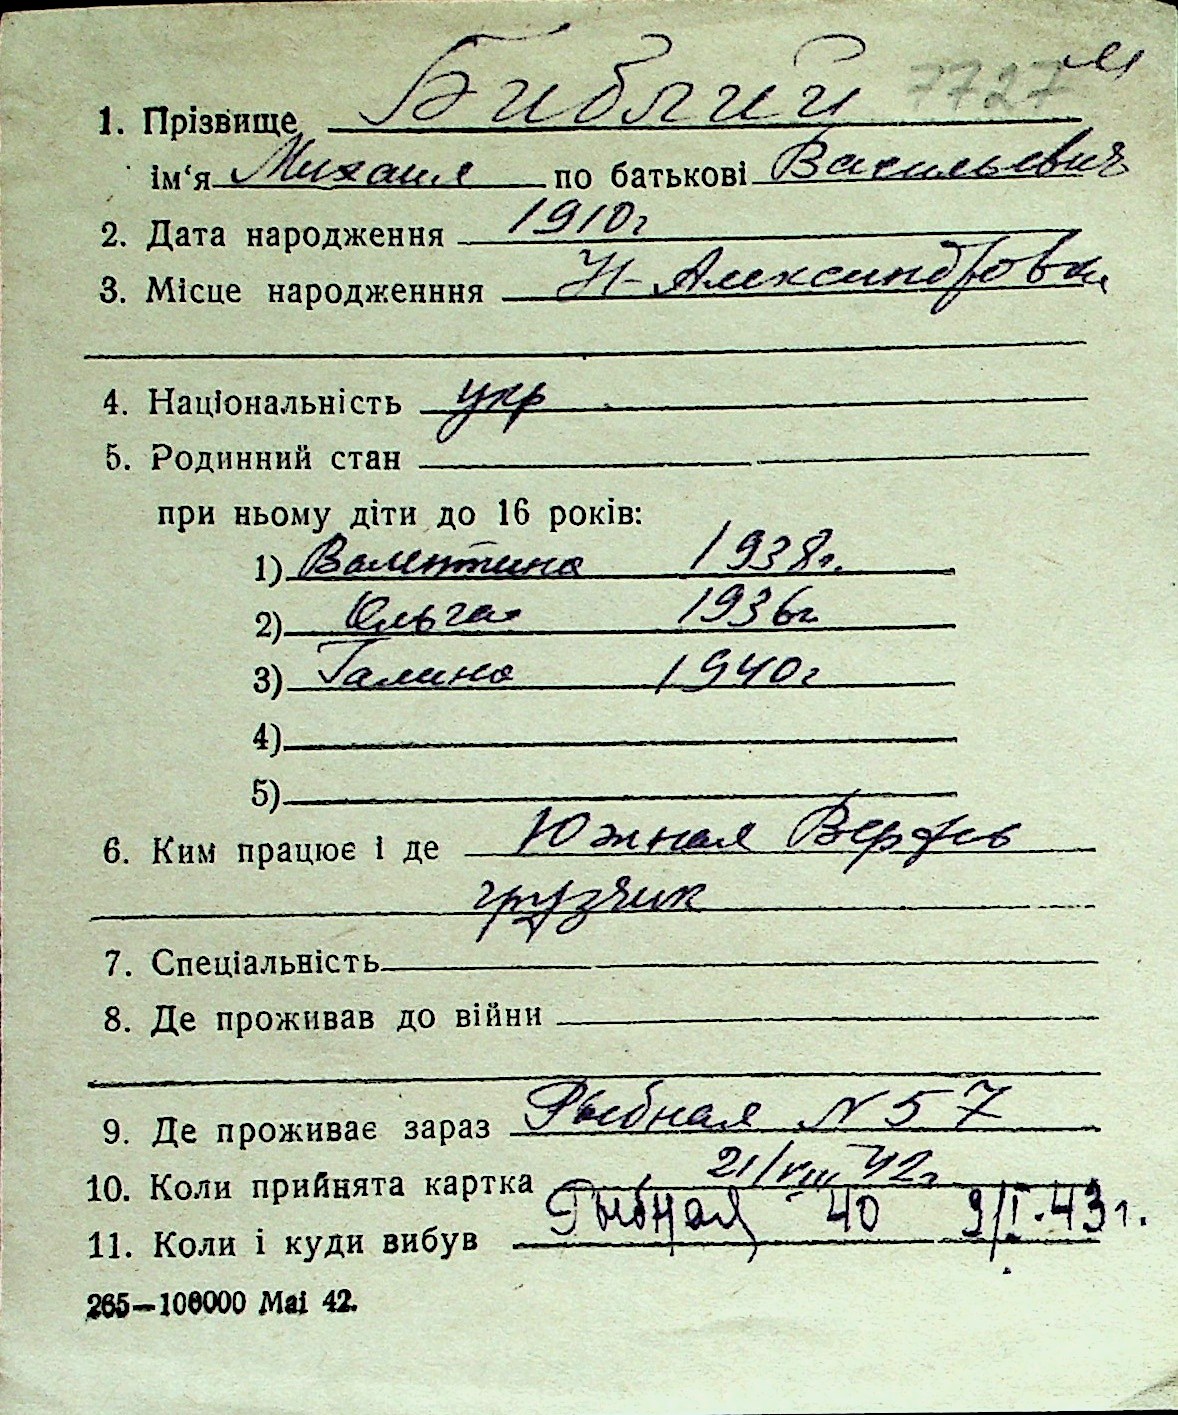 1. Прізвище Библий 7727 м
ім‘я Михаил по батькові Васильевич
2. Дата народження 1910г
3. Місце народженння Н-Александровка
4. Національність укр
5. Родинний стан
при ньому діти до 16 років:
1) Валентина 1938г.
2) Ольга 1936г
3) Галина 1940г
4)
5)
6. Ким працює і де Южная Верфь
грузчик
7. Спеціальність
8. Де проживав до війни
9. Де проживає зараз Рыбная N 57
10. Коли прийнята картка 21/VIII 42г
11. Коли і куди вибув Рыбная 40 9/I.43г.
265—100000 Mai 42.